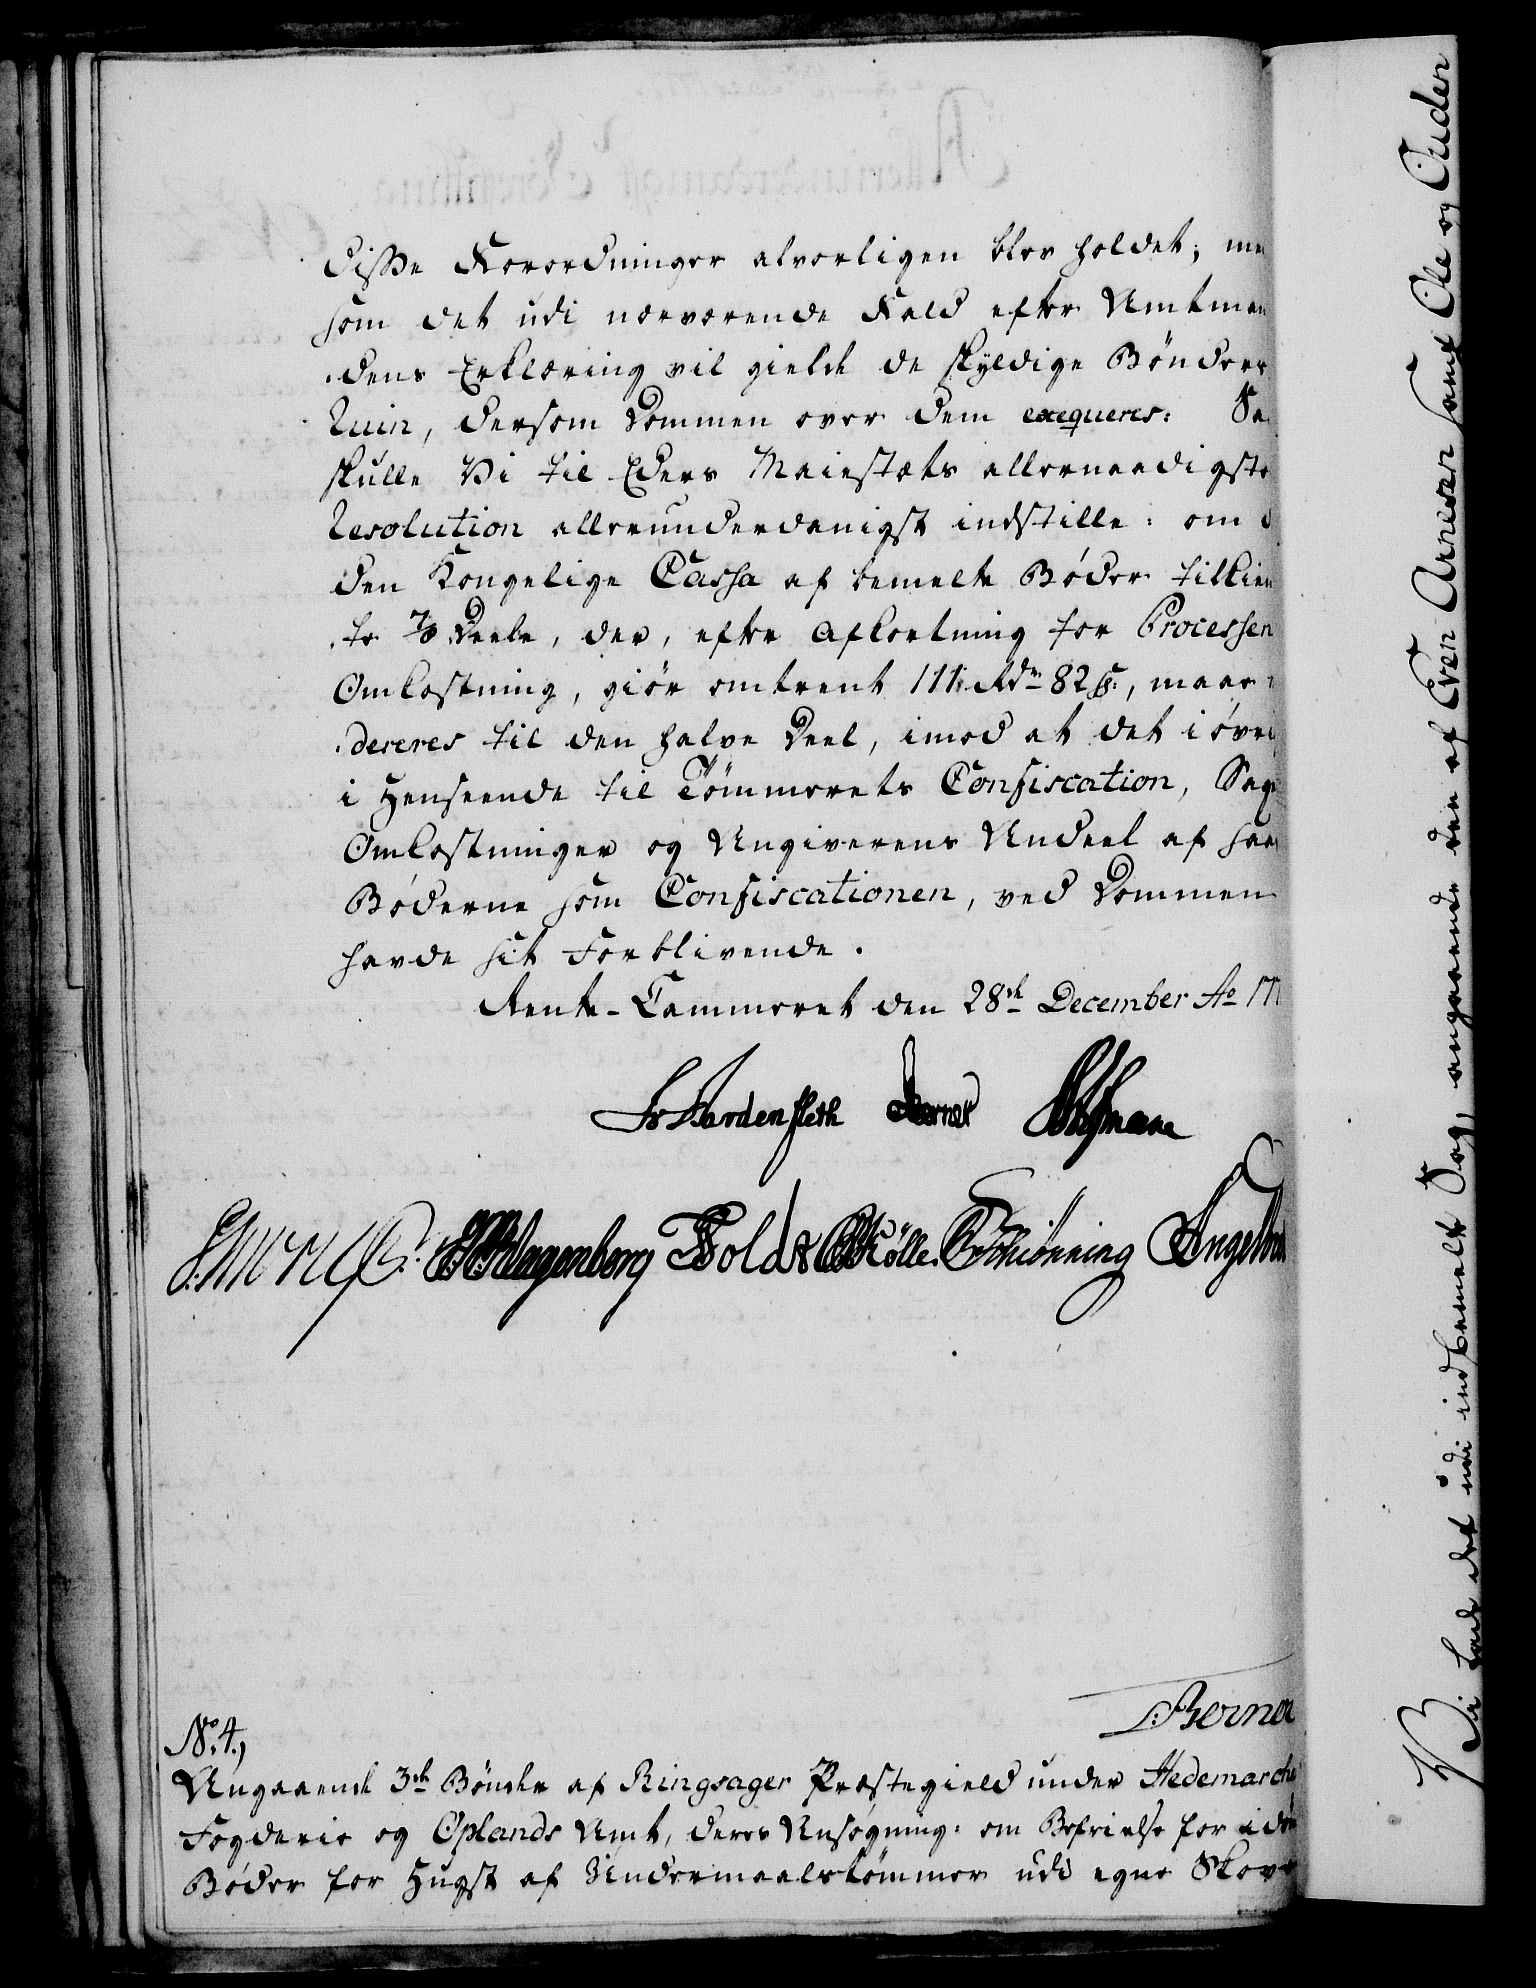 diße Forordninger alvorligen blev holdet; me
som det udi nærværende Fald efter Amtman
dens Erklæring vil gielde de skyldige Bønders
Ruin, dersom Dommen over dem exequeres: Sa
skulle Vi til Eders Maiestæts allernaadigste
Resolution allerunderdanigst indstille: om d
den Kongelige Cassa af bemelte Bøder tillien
te 7/8 Deele, der, efter Afkortning for Processen
Omkostning, giør omtrent 111 Rdr 82 ß:, maae
dereres til den halve Deel, imod at det i øvri
i Henseende til Tømmerets Confiscation, Sag
Omkostninger og Angiverens Andeel af saa
Bøderne som Confiscationen, ved Dommen
havde sit Forblivende.
Rente-Cammeret den 28de December Ao 17
Fr Vardenfleth Berner Hofmann
Klagenberg Told Kölle. Schiönning Angel
Berner
No. 4.,
Angaaende 3de Bønder af Ringsager Præstegield under Hedemarche
Fogderie og Oplands Amt, deres Ansøgning: om Befrielse for idøm
Bøder for Hugst af Undermaalstømmer udi egne Skove
Vi lade det udi indbemelte Sag, angaaende den af Even Arnesen samt Ole og Ouden